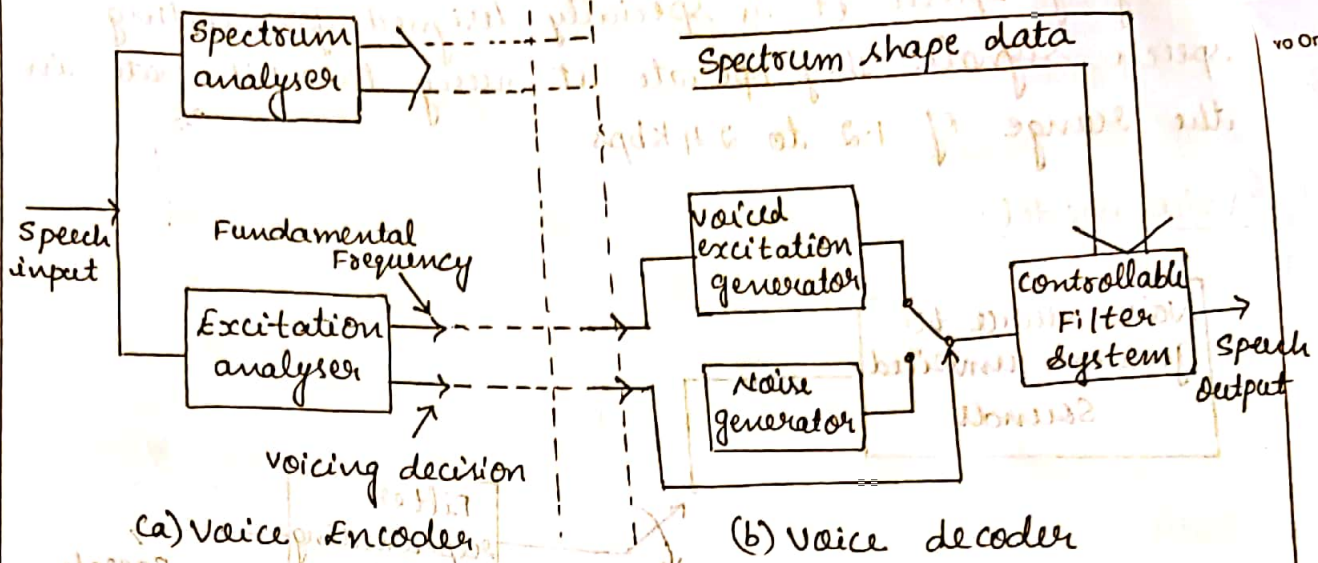 Spectrum
analyser
Spectrum shape data
Speech
input
Fundamental
Frequency
Excitation
analyser
Voicing decision
(a) Voice Encoder
voiced
excitation
generator
Noise
generator
Controllable
Filter
System
Speech
Output
(b) Voice decoder
the range of 1.2 to 2.4 kbps
vo Or